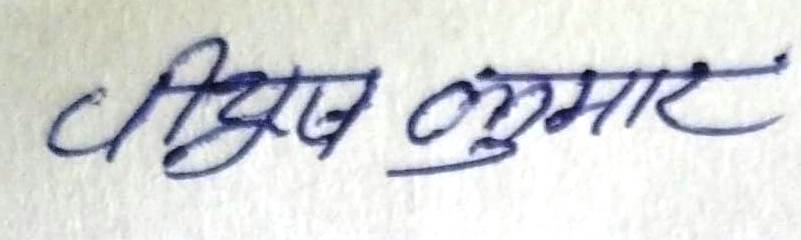 पीयूष कुमार